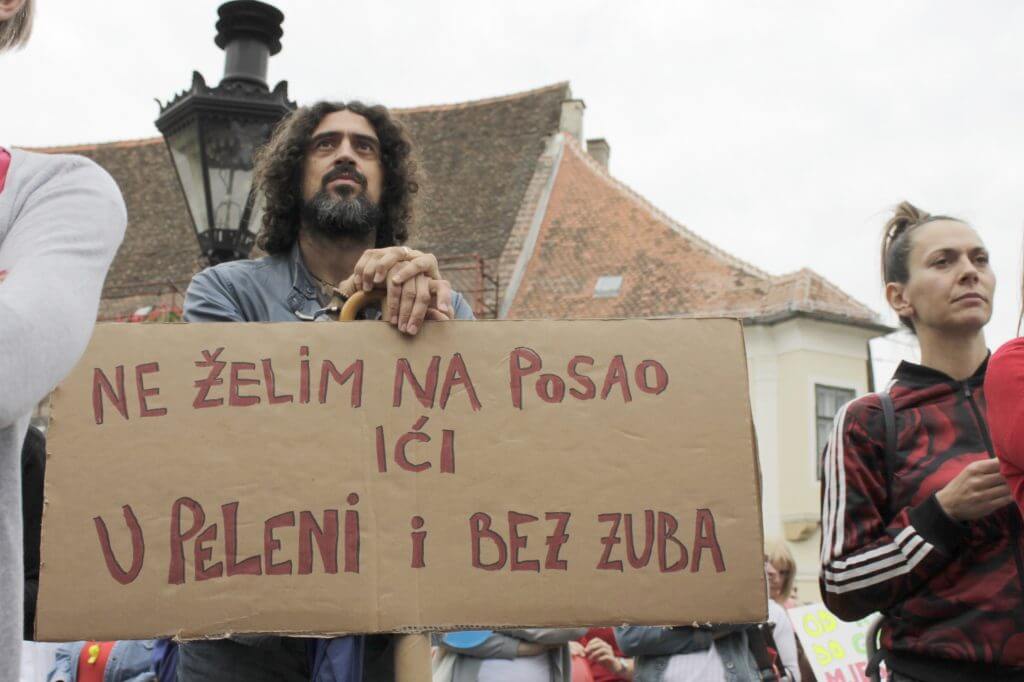 NE ŽELIM NA POSAO
IĆI
U PELENI i BEZ ZUBA